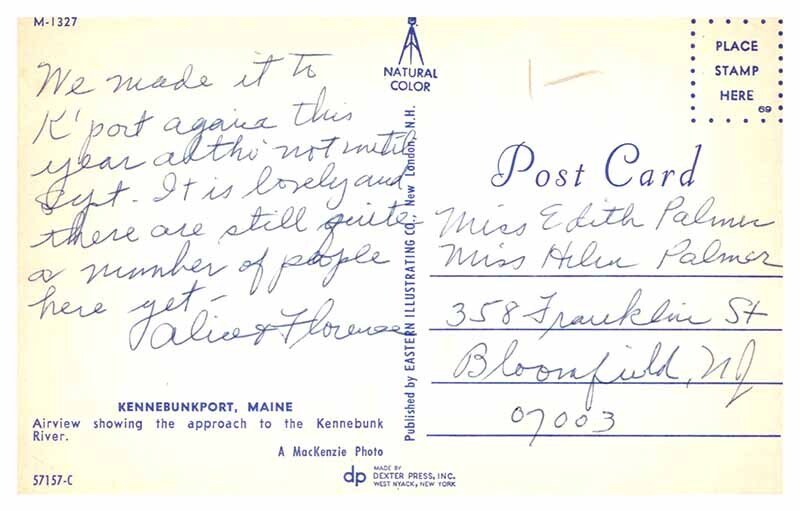 M-1327
We made it to
K'port again this
year altho' not until
Sept. It is lovely and
there are still quite
a number of people
here yet –
Alice & Florence
KENNEBUNKPORT, MAINE
Airview showing the approach to the Kennebunk
River.
A MacKenzie Photo
57157-C
NATURAL
COLOR
Published by EASTERN ILLUSTRATING CO., New London, N.H.
dp MADE BY
DEXTER PRESS, INC.
WEST NYACK, NEW YORK
PLACE
STAMP
HERE
69
Post Card
Miss Edith Palmer
Miss Helen Palmer
358 Franklin St
Bloomfield, NJ
07003